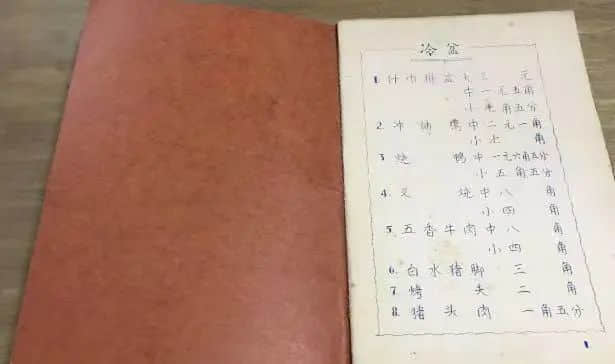 冷盆
1. 什市拼盆大三 元
中一元五角
小 角五分
2. 冲 鹦中二元一角
小七 角
3. 烧 鸭中一元六角五分
小五角五分
4. 叉 烧中八 角
小四 角
5. 五香牛肉中八 角
小四 角
6. 白水猪脚 三 角
7. 烤 夫 二 角
8. 猪头肉 一角五分
1